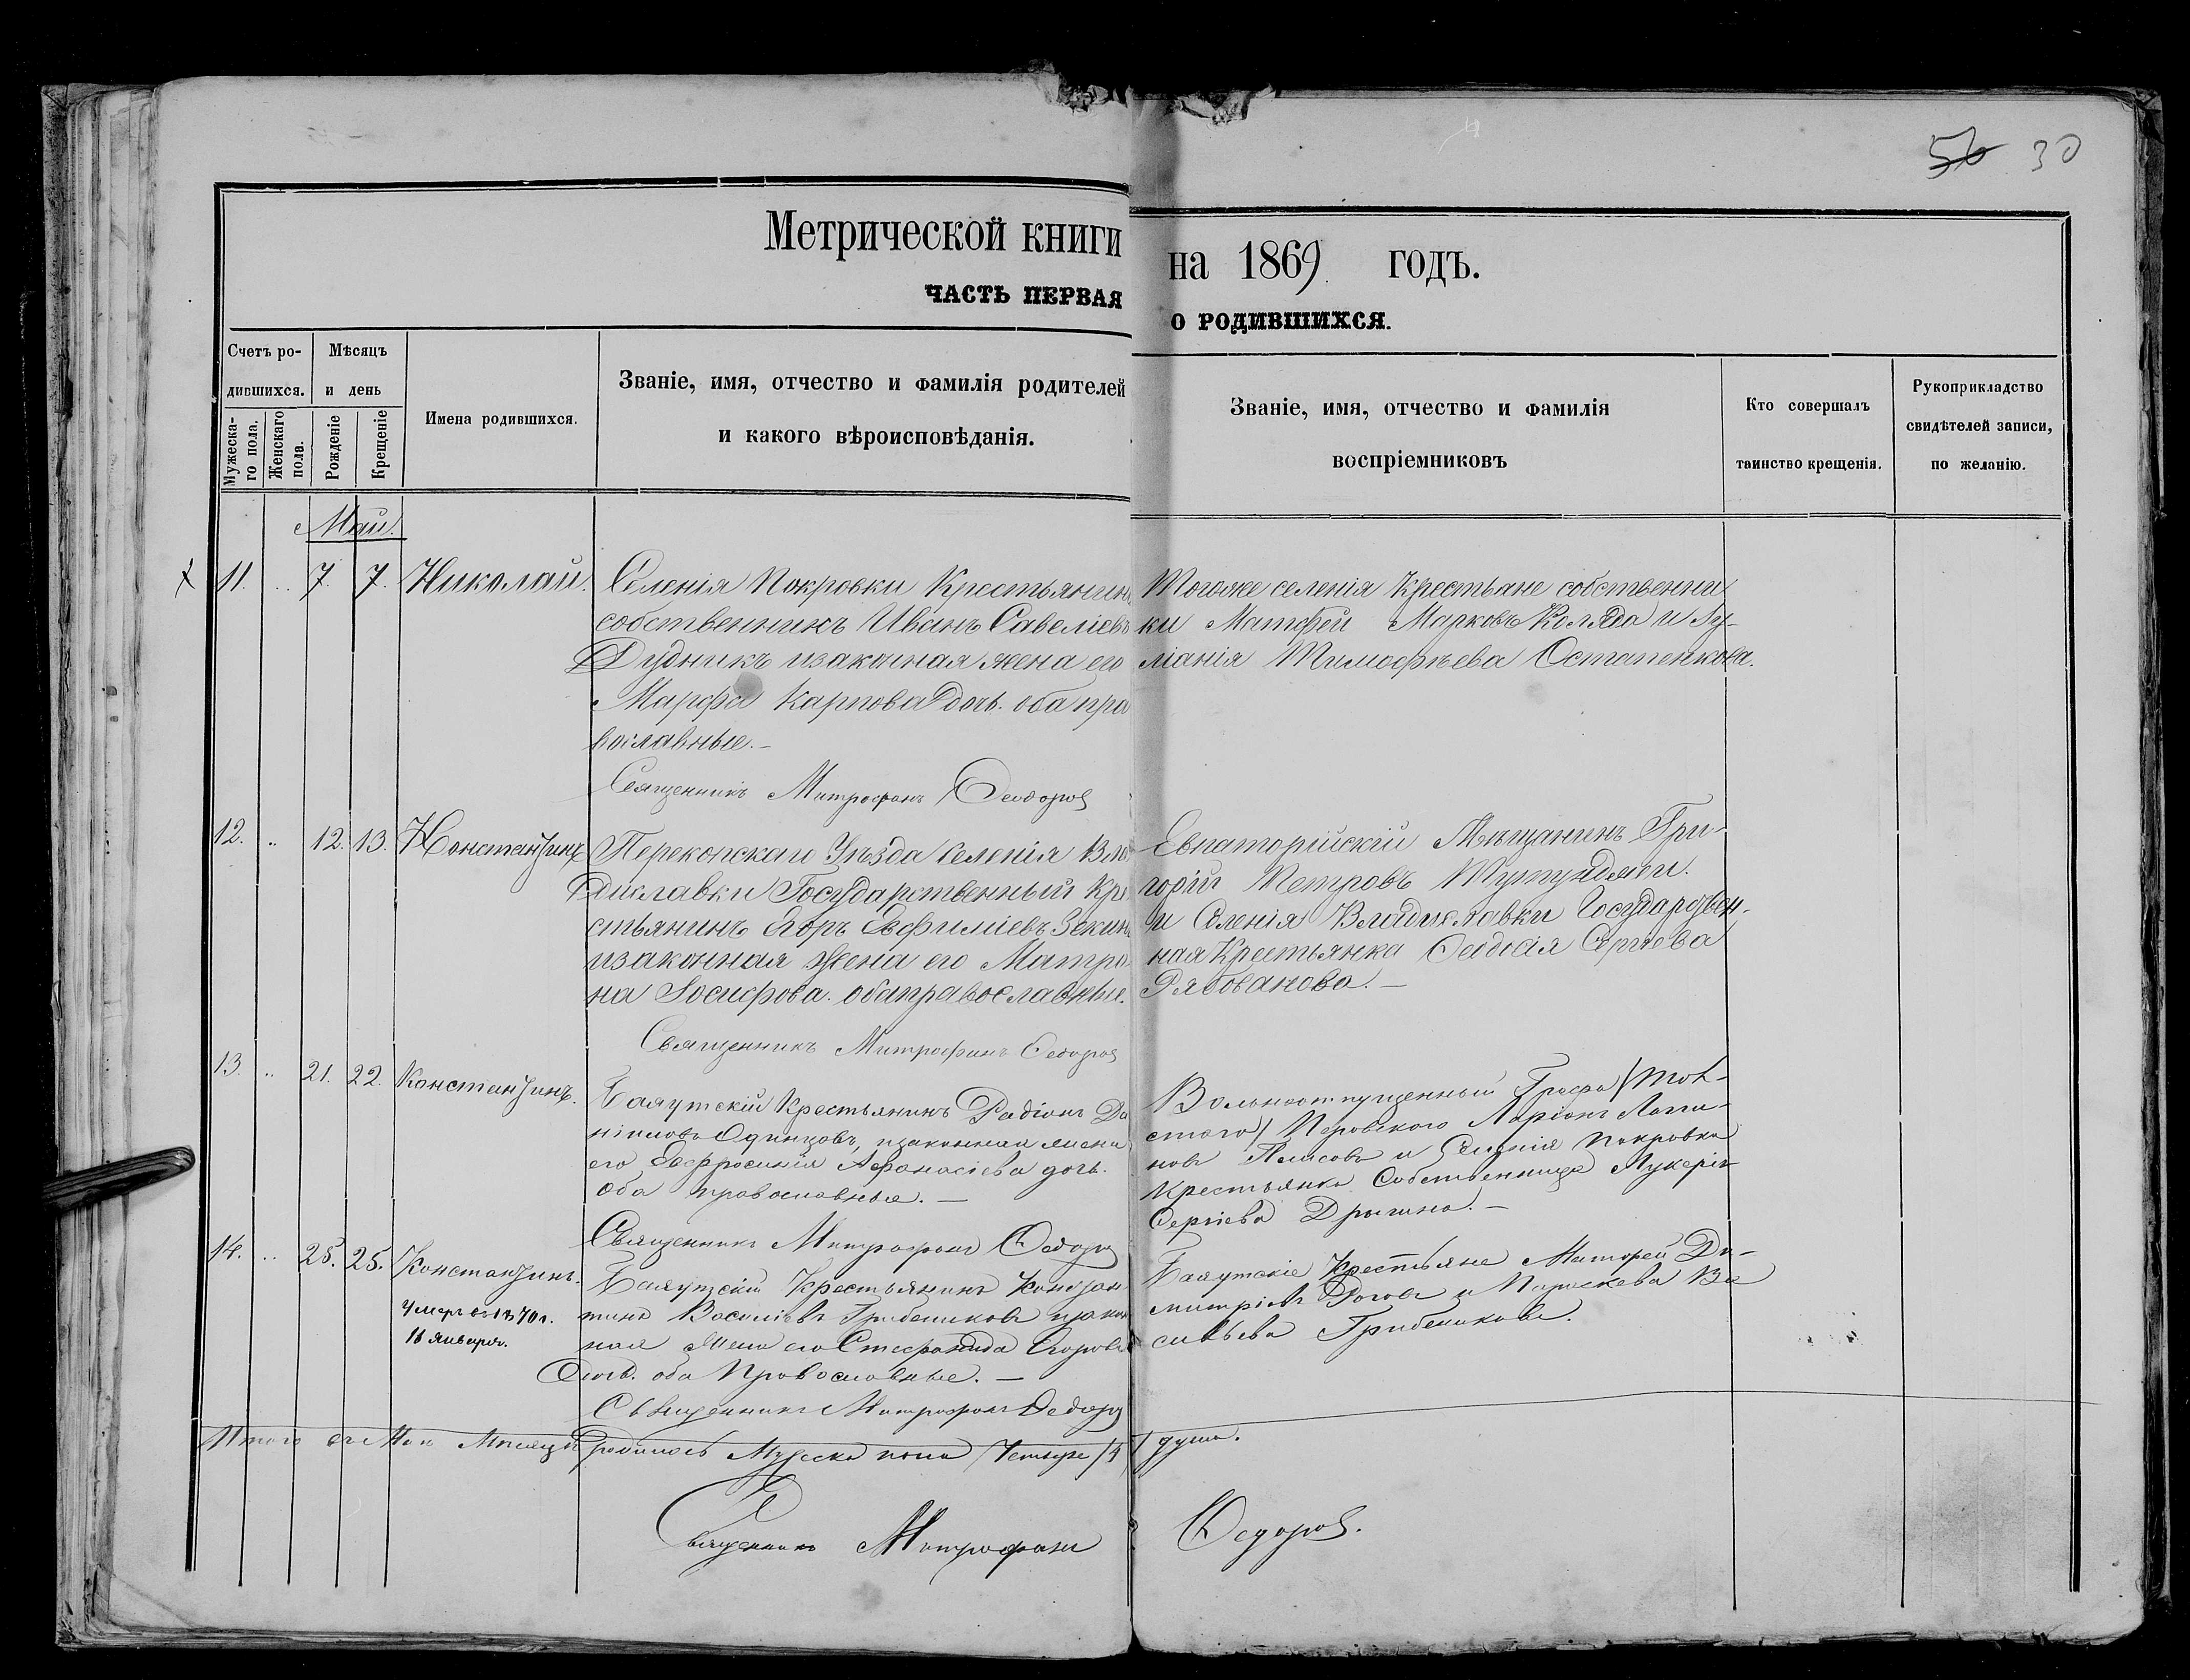 56 30
Метрической книги на 1869 годъ.
ЧАСТЬ ПЕРВАЯ О РОДИВШИХСЯ.
Счетъ ро-
дившихся.
Мужеска-
го пола.
Женскаго
пола.
Мѣсяцъ
и день
Рожденіе
Крещеніе
Имена родившихся.
Званіе, имя, отчество и фамилія родителей
и какого вѣроисповѣданія.
Званіе, имя, отчество и фамилія
воспріемниковъ
Кто совершалъ
таинство крещенія.
Рукоприкладство
свидѣтелей записи,
по желанію.
Май.
11. .. 7. 7. Николай.
Селенія Покровки Крестьянинъ
собственникъ Иванъ Савеліевъ
Дудникъ изаконная жена его
Марфа Карпова дочь. оба пра
вославные.–
Священникъ Митрофанъ Ѳеодоров
Тогоже селенія Крестьяне собственни
ки Матфей Марковъ Коляда и Іу-
ліанія Тимофѣева Остапенкова.
12. .. 12. 13. Константинъ
Перекопскаго Уѣзда селенія Вла
диславки Государственный Кре
стьянинъ Егоръ Евфиміевъ Зекинъ
изаконная жена его Матро
на Іосифова. оба православные.
Священникъ Митрофанъ Ѳеодоров
Евпаторійскій Мѣщанинъ Гри-
горій Петровъ
и Селенія Владиславки Государствен-
ная Крестьянка Ѳеодосія Сергѣева
Рябованова.–
13. .. 21. 22. Константинъ.
Баяутскій Крестьянинъ Радіонъ Да
ніиловъ Одинцовъ, изаконная жена
его Евфросинія Афанасіева дочь.
Оба православные.–
Священникъ Митрофанъ Ѳедоров
Вольноотпущенный Графа
Перовского Ларіонъ
новъ и Селенія Покровки
Крестьянка Собственница Лукерія
Сергіева –
14. .. 25. 25. Константинъ.
Умеръ въ 1870 г.
Января.
Баяутскій Крестьянинъ Констан
тинъ Василіевъ Грибениковъ изакон
ная жена его Стефанида Егорова
дочь. оба Православные.–
Священникъ Митрофанъ Ѳедоров
Баяутскіе Крестьяне Матфей Ди-
митріевъ Роговъ и Параскева Ва
сильева Грибеникова.
Итого въ Маѣ Мѣсяцѣ родилось Мужеска пола Четыре /4/ души.
Священникъ Митрофанъ Ѳедоров.